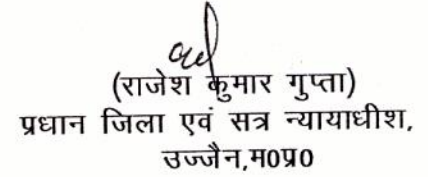 (राजेश कुमार गुप्ता)
प्रधान जिला एवं सत्र न्यायाधीश,
उज्जैन,म0प्र0